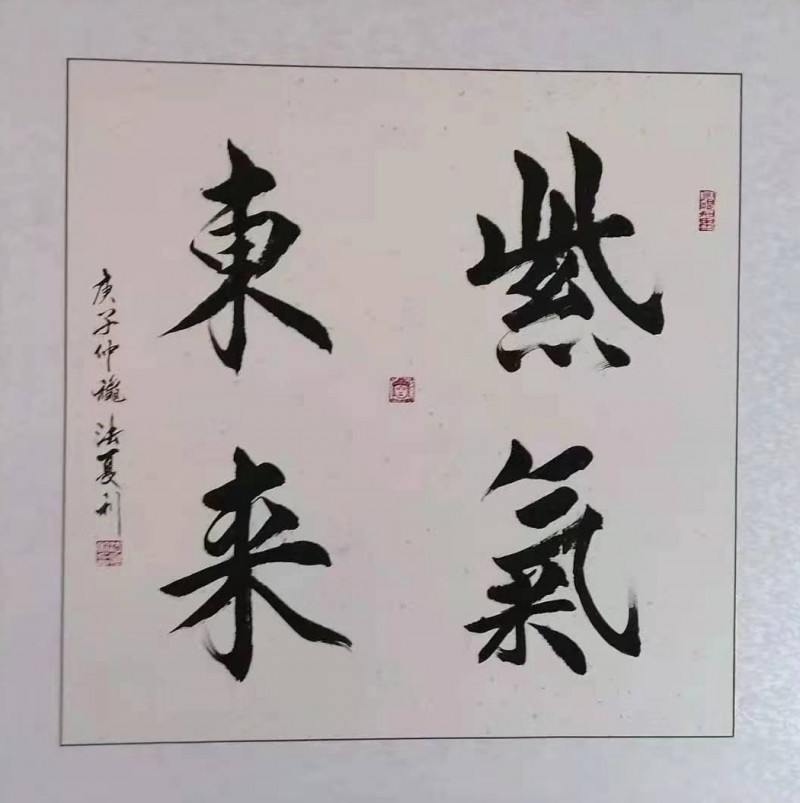 紫氣
東来
庚子仲秋法夏利